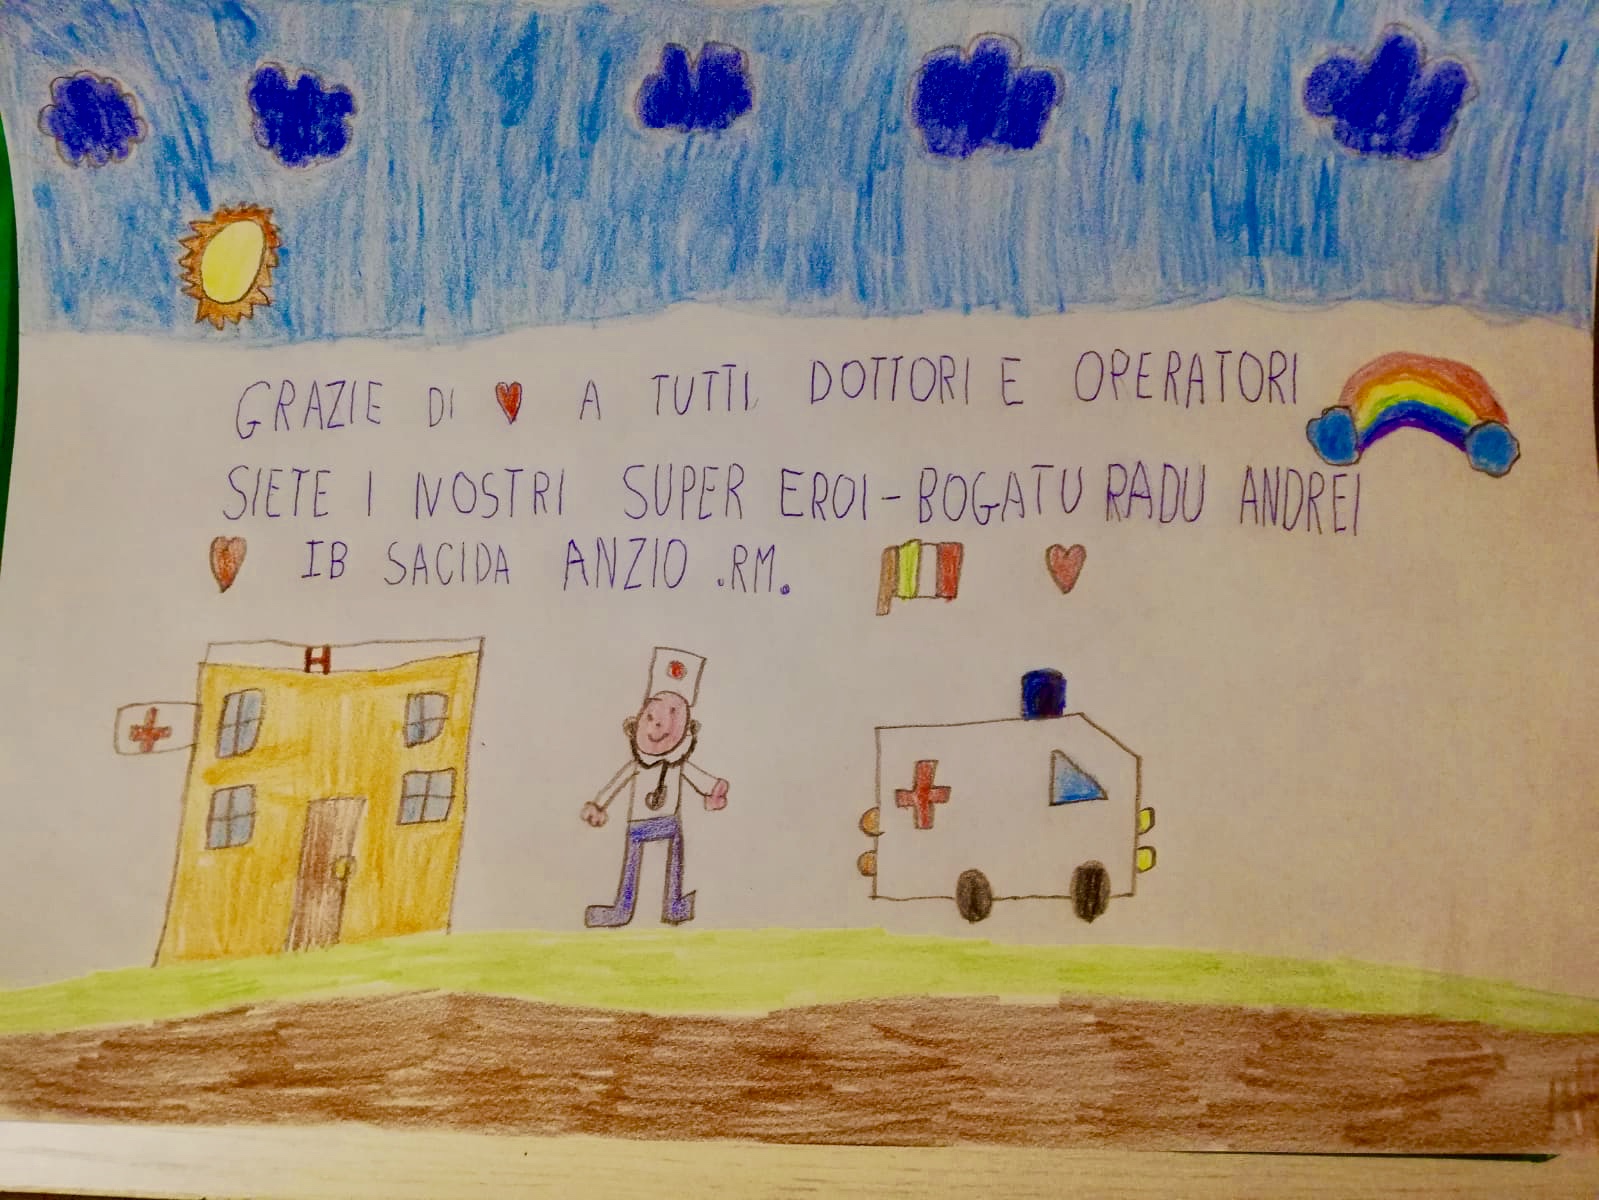 GRAZIE DI ♥ A TUTTI DOTTORI E OPERATORI
SIETE I NOSTRI SUPER EROI - BOGATU RADU ANDREI
IB SACIDA ANZIO .RM.
H